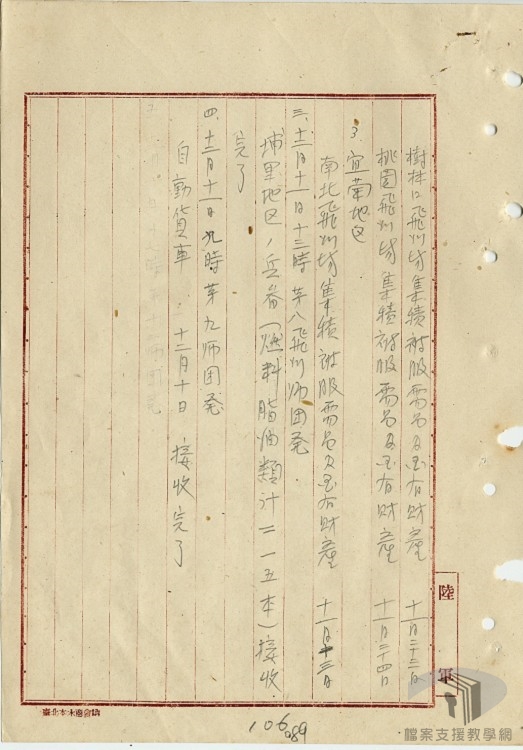 樹林口飛行場集積被服需品及国有財産 十一月二十二日
桃園飛行場集積被服需品及国有財産 十一月二十四日
3. 宜蘭地区
南北飛行場集積被服需品及国有財産 十一月十三日
三、十二月十一日十三時第八飛行師団発
埔里地区ノ兵器(燃料脂油類計二一五本)接收
完了
四、十二月十一日九時第九師団発
自動貨車 十二月十日 接收完了
陸軍
106
089
檔案支援教學網